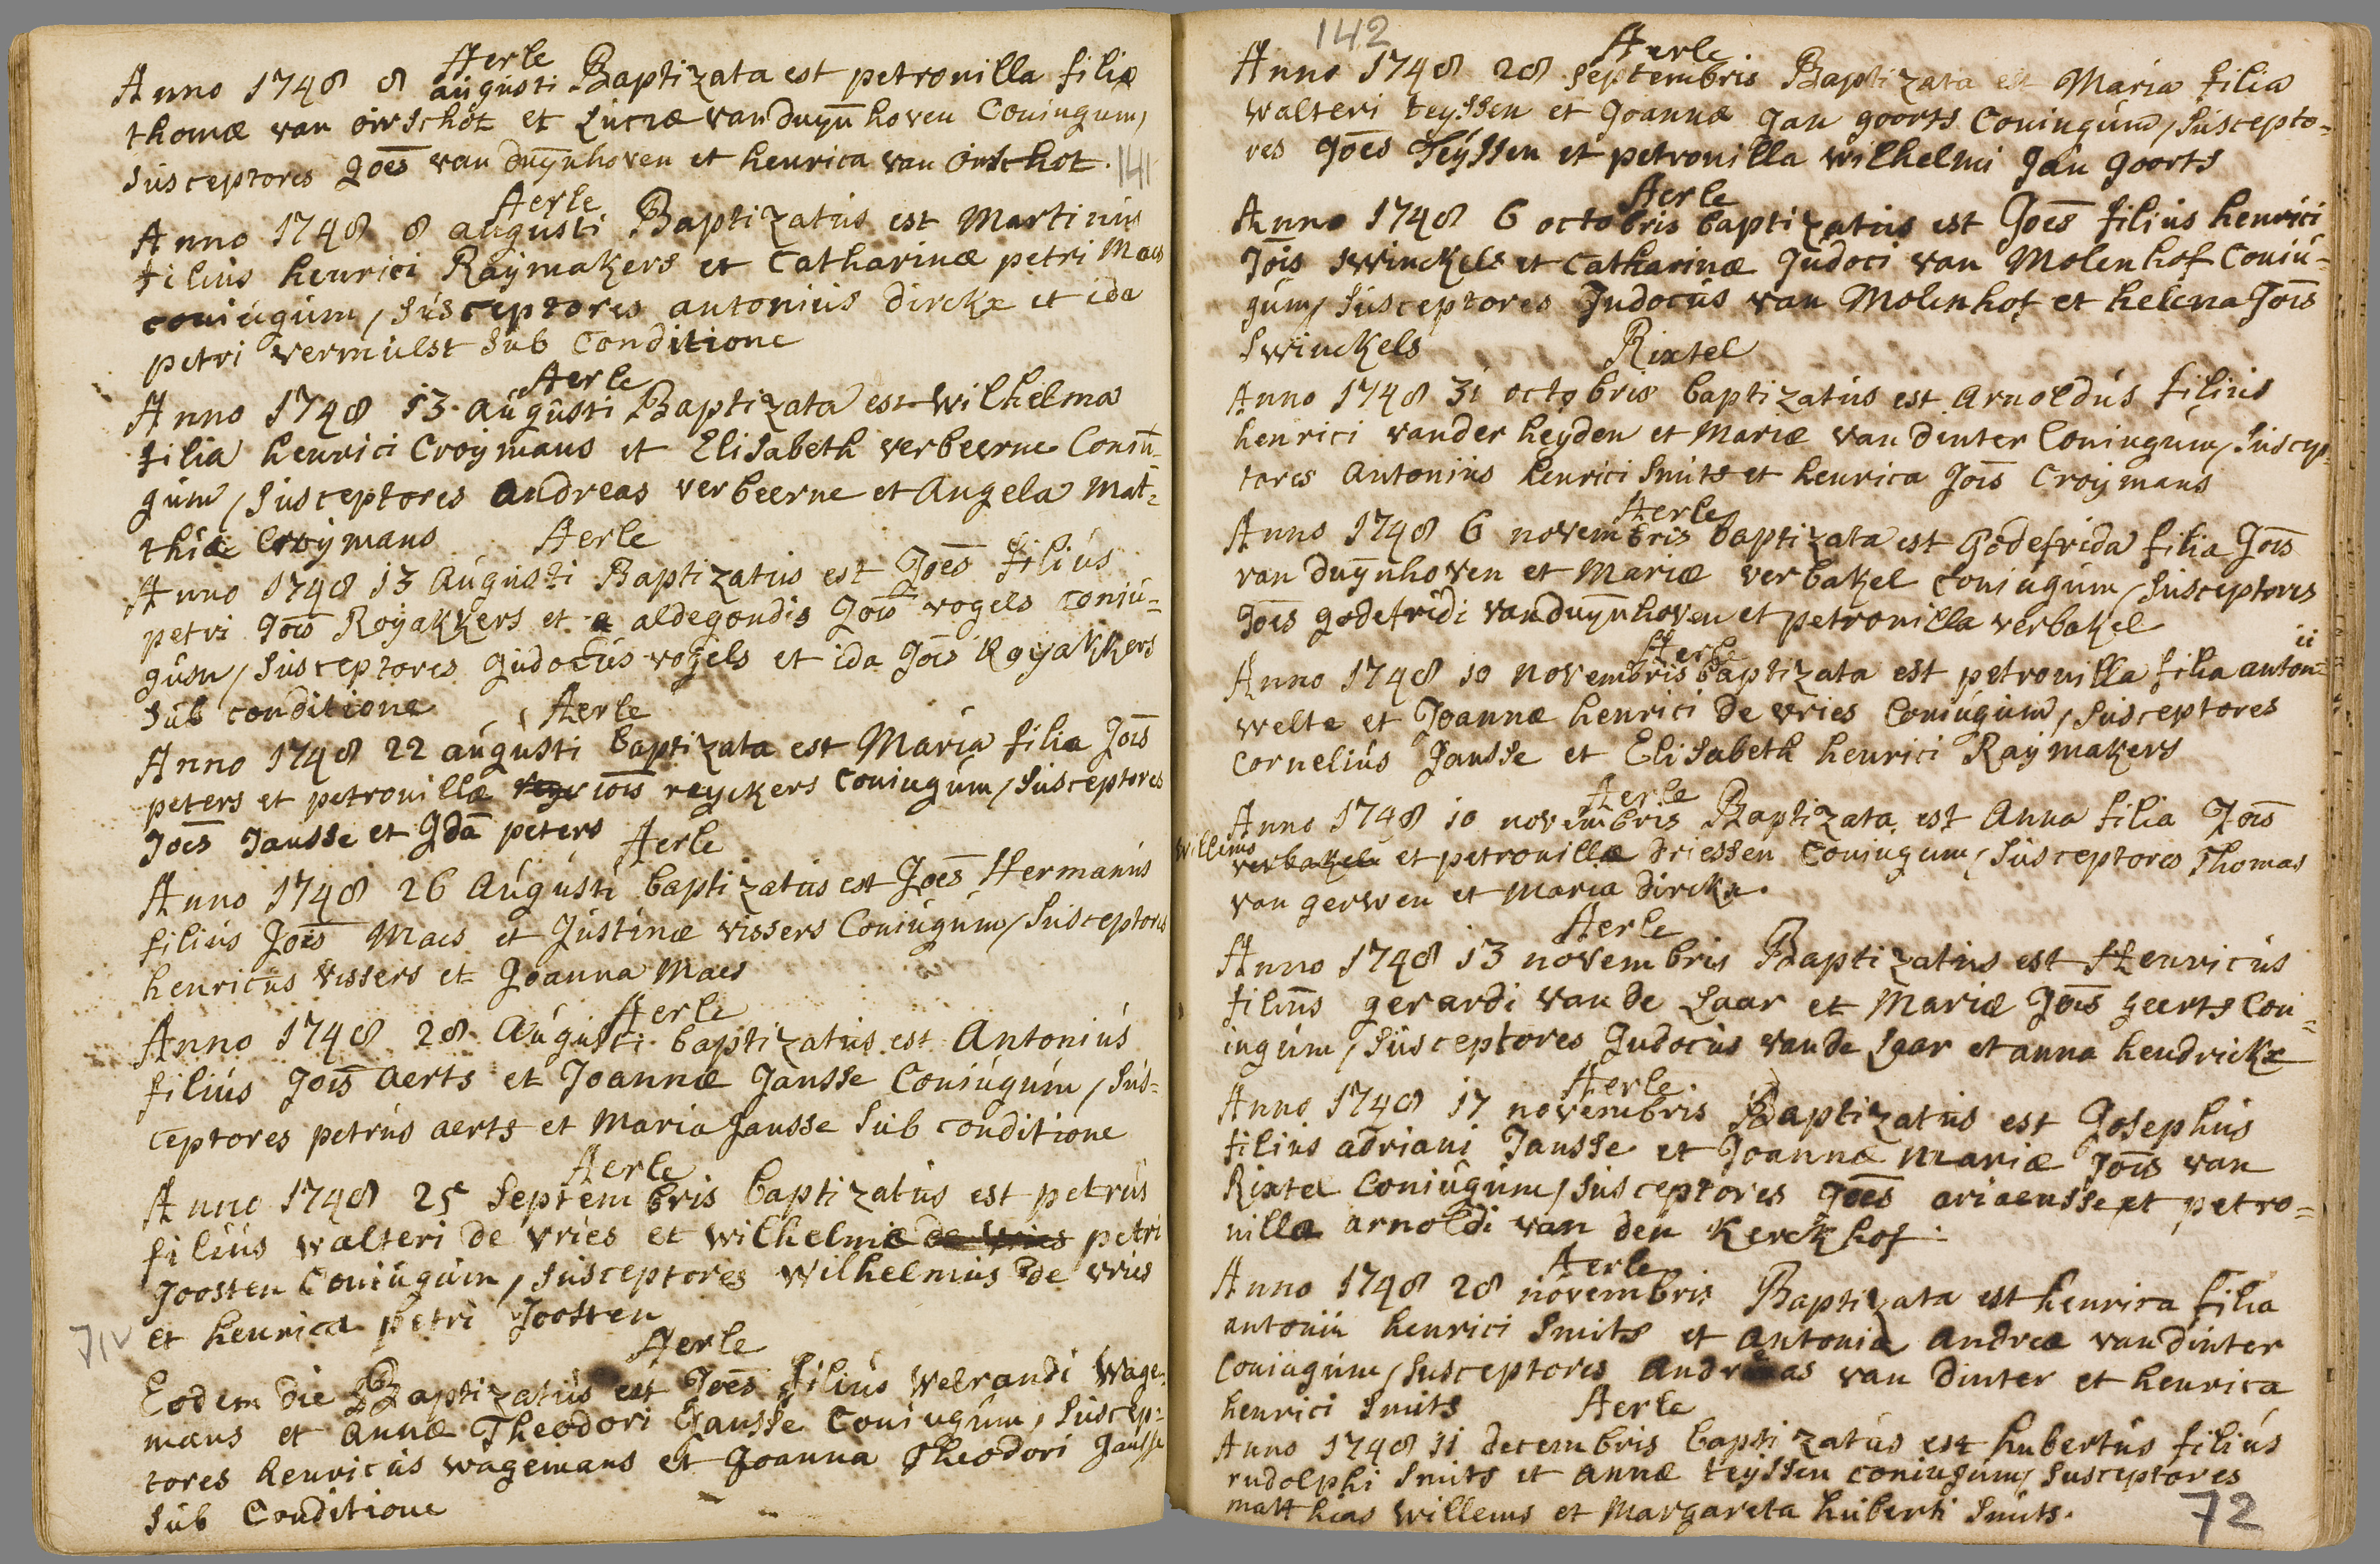 Aerle
Anno 1748 8 augusti Baptizata est petronilla filia
thomæ van oirschot et Luciæ van duÿnhoven Coniugum,
susceptores Joēs van duÿnhoven et henrica van oirschot.
141
Aerle
Anno 1748 8 augusti Baptizatus est Martinus
filius henrici Raÿmakers et Catharinæ petri Maes
coniugum, susceptores antonius dirckx et ida
petri vermulst sub Conditione
Aerle
Anno 1748 13 augusti Baptizata est wilhelma
filia henrici Croÿmans et Elisabeth verbeerne Coniu-
gum, susceptores andreas verbeerne et Angela Mat=
thiæ Croÿmans
Aerle
Anno 1748 13 Augusti Baptizatus est Joēs filius
petri Joīs Roÿakkers et a aldegondis Joīs vogels coniu=
gum, susceptores judocus vogels et ida Joīs Roÿakkers
sub conditione
Aerle
Anno 1748 22 augusti baptizata est Maria filia Joīs
peters et petronillæ ioīs reyckers Coniugum, susceptores
Joēs Jansse et Ida peters
Aerle
Anno 1748 26 Augusti baptizatus est Joēs Hermanus
filius Joīs Maes et Justinæ vissers Coniugum, susceptores
henricus vissers et Joanna Maes
Aerle
Anno 1748 28 Augusti baptizatus est Antonius
filius Joīs aerts et Joannæ Jansse Coniugum, sus=
ceptores petrus aerts et Maria Jansse sub conditione
Aerle
Anno 1748 25 septembris baptizatus est petrus
filius walteri de vries et wilhelmiæ de vries petri
Joosten Coniugum, susceptores wilhelmus de vries
et henrica petri Joosten
71V
Aerle
Eodem die Baptizatus est Joēs filius welrandi wage=
mans et annæ Theodori Jansse Coniugum, suscep=
tores henricus wagemans et Joanna Theodori Jansse
sub Conditione
142
Aerle
Anno 1748 28 septembris Baptizata est Maria filia
walteri teyssen et Joannæ Jan goorts Coniugum, suscepto=
res Joēs Teÿssen et petronilla wilhelmi Jan goorts
Aerle
Anno 1748 6 octobris baptizatus est Joēs filius henrici
Joīs swinckels et Catharinæ Judoci van Molenhof Coniu=
gum, susceptores Judocus van Molenhof et helena Joīs
swinckels
Rixtel
Anno 1748 31 octobris baptizatus est Arnoldus filius
henrici vander heyden et Mariæ van dinter Coniugum, suscep=
tores Antonius henrici smits et henrica Joīs Croÿmans
Aerle
Anno 1748 6 novembris baptizata est Godefrida filia Joīs
van duÿnhoven et Mariæ verbakel coniugum, susceptores
Joēs godefridi van duÿnhoven et petronilla verbakel
Aerle
Anno 1748 10 novembris baptizata est petronilla filia anton= ii
welte et Joannæ henrici de vries Coniugum, susceptores
Cornelius Jansse et Elisabeth henrici Raÿmakers
Aerle
Anno 1748 10 novembris Baptizata est Anna filia Joīs
willems
verbakel et petronillæ driessen Coniugum, susceptores Thomas
van gerwen et Maria dirckx.
Aerle
Anno 1748 13 novembris Baptizatus est Henricus
filius gerardi van de Laar et Mariæ Joīs geerts Con=
iugum, susceptores Judocus van de Laar et anna hendrickx
Aerle
Anno 1748 17 novembris Baptizatus est Josephus
filius adriani Jansse et Joannæ Mariæ Joīs van
Rixtel Coniugum, susceptores Joēs ariaensse et petro=
nilla arnoldi van den Kerckhof.
Aerle
Anno 1748 28 novembris Baptizata est henrica filia
antonii henrici smits et antoniæ andreæ van dinter
Coniugum, susceptores andreas van dinter et henrica
henrici smits
Aerle
Anno 1748 11 decembris baptizatus est hubertus filius
rudolphi smits et annæ teyssen coniugum, susceptores
matthias willems et Margareta huberti smits.
72